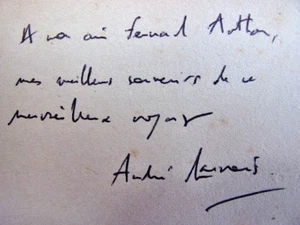 A mon ami Fernand
mes meilleurs souvenirs de ce
merveilleux voyage
André